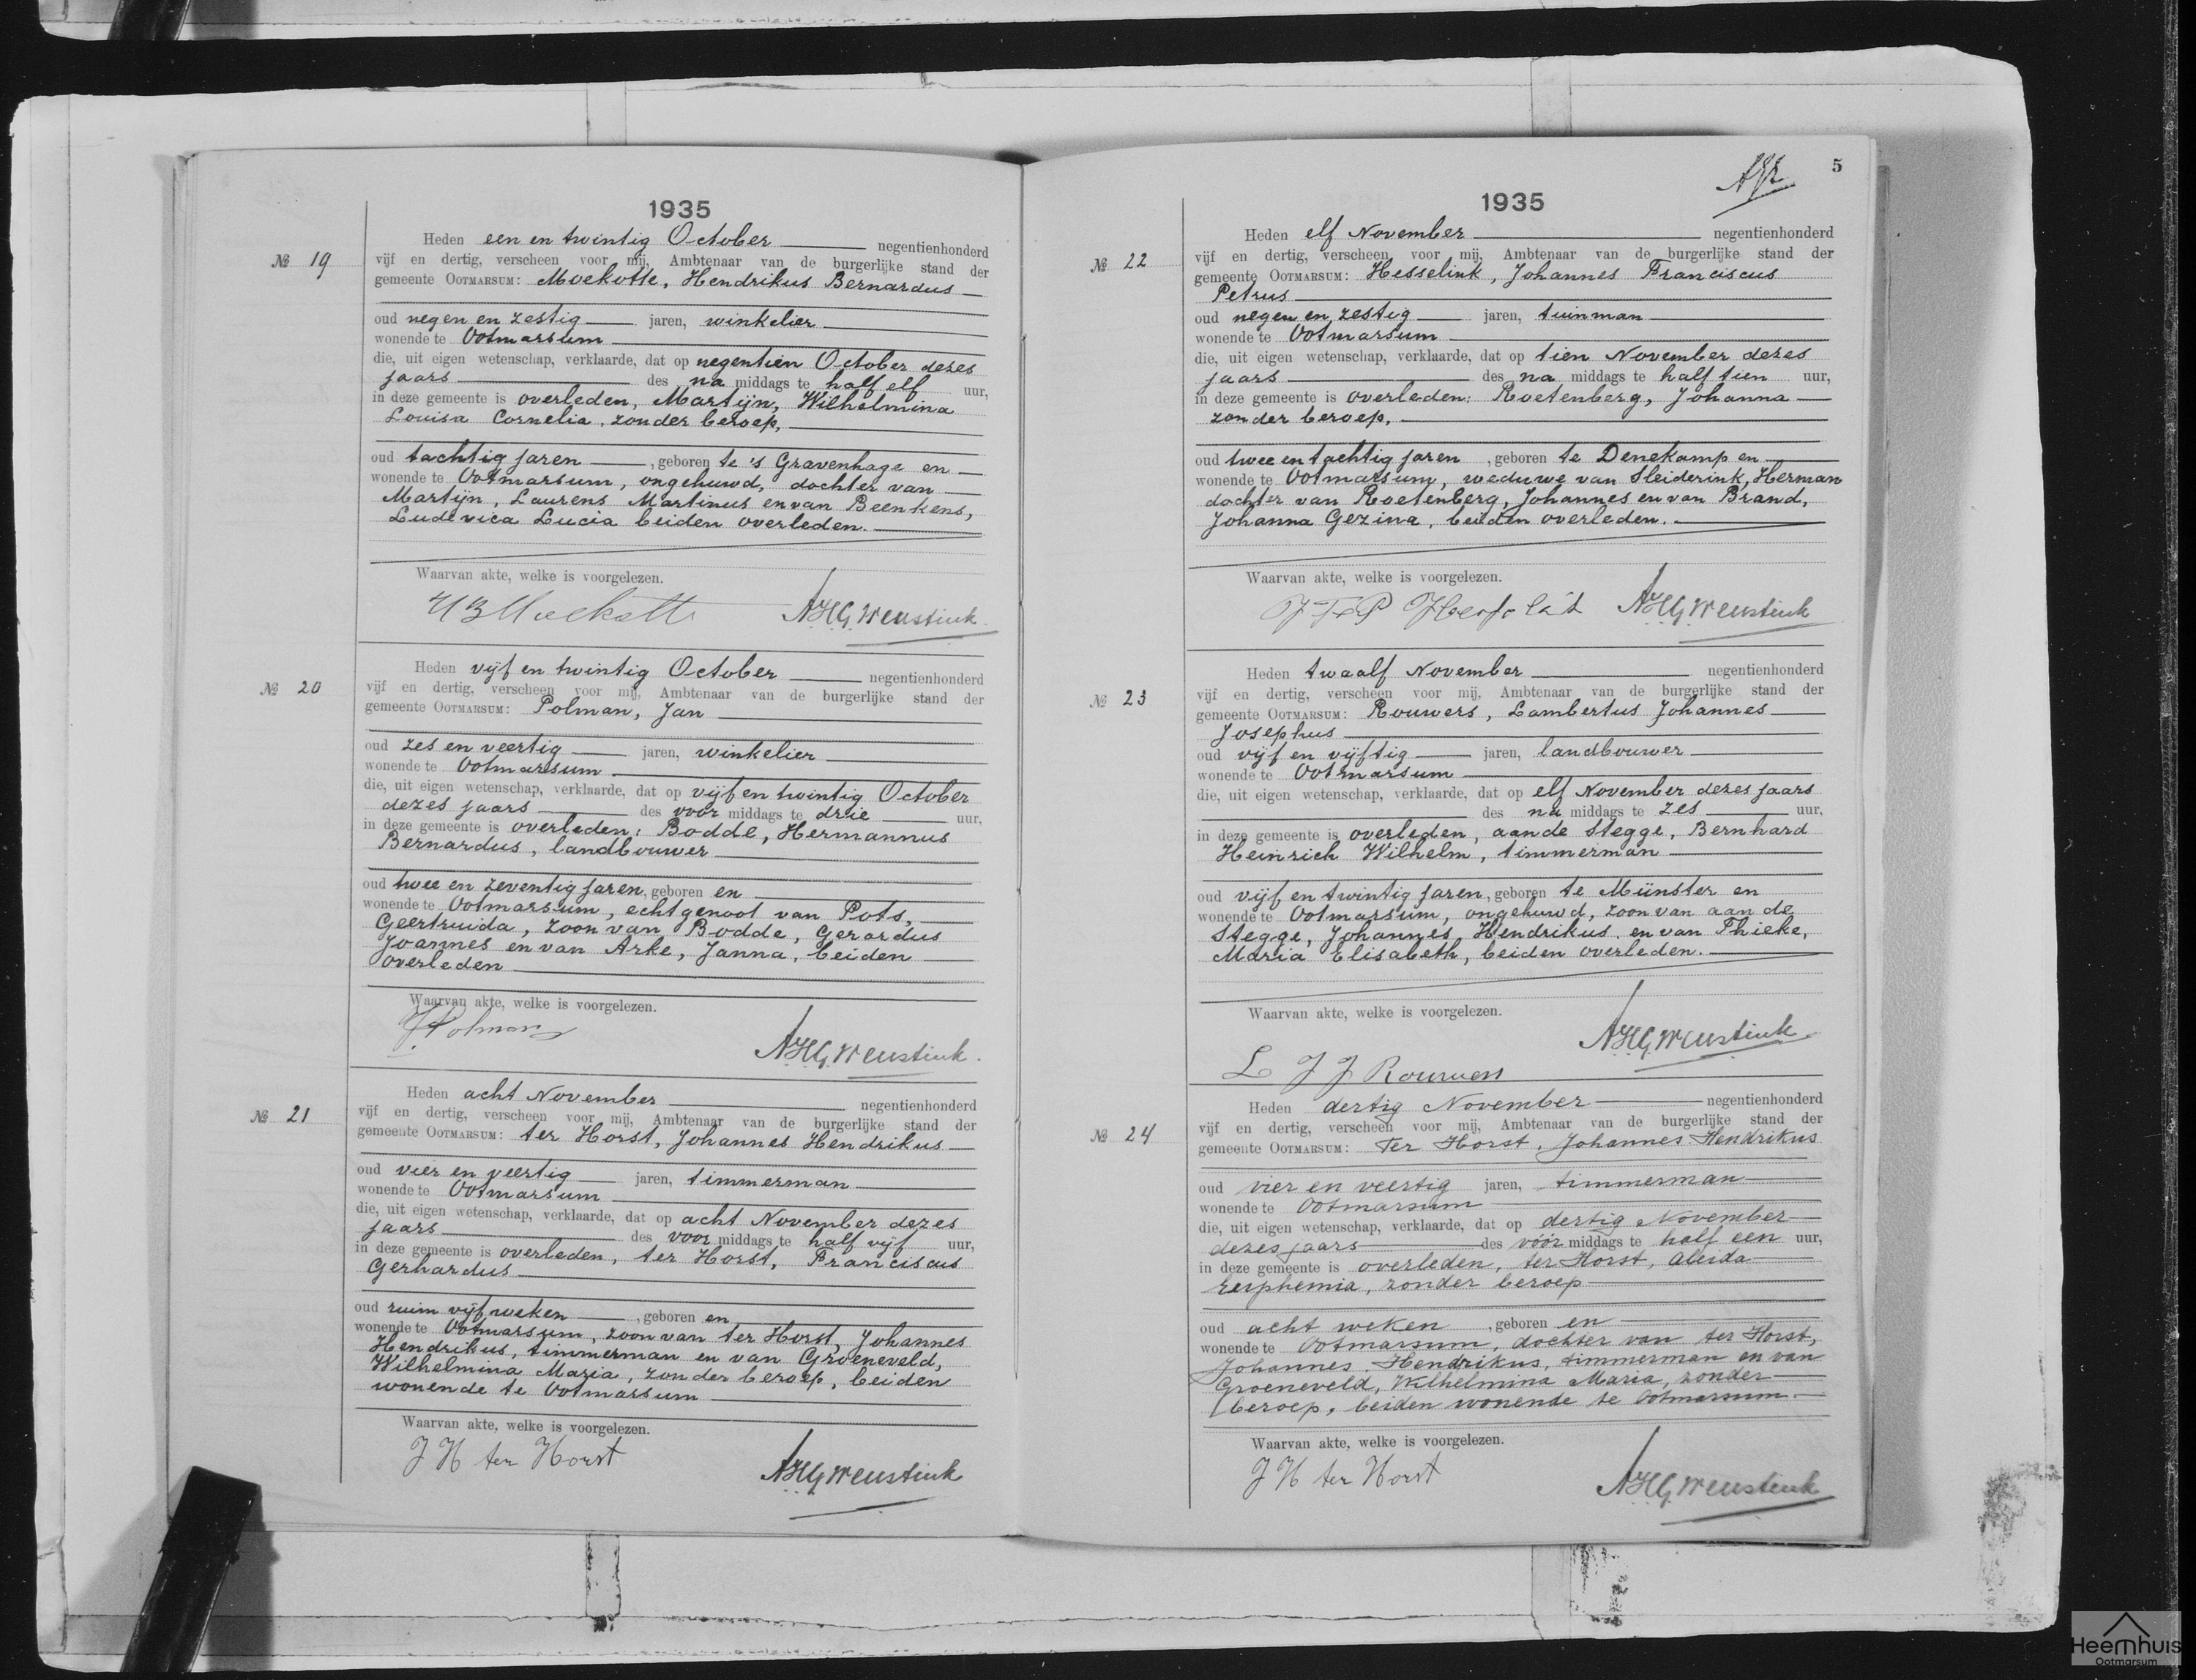 1935
№ 19
Heden een en twintig October negentienhonderd
vijf en dertig, verscheen voor mij, Ambtenaar van de burgerlijke stand der
gemeente OOTMARSUM: Moekotte, Hendrikus Bernardus
oud negen en zestig jaren, winkelier
wonende te Ootmarsum
die, uit eigen wetenschap, verklaarde, dat op negentien October dezes
jaars des na middags te half elf uur,
in deze gemeente is overleden, Martijn, Wilhelmina
Louisa Cornelia, zonder beroep,
oud tachtig jaren, geboren te 's Gravenhage en
wonende te Ootmarsum, ongehuwd, dochter van
Martijn, Laurens Martinus en van Beenkens,
Ludevica Lucia beiden overleden.
Waarvan akte, welke is voorgelezen.
HBMoekotte AHGWeustink
№ 20
Heden vijf en twintig October negentienhonderd
vijf en dertig, verscheen voor mij, Ambtenaar van de burgerlijke stand der
gemeente OOTMARSUM: Polman, Jan
oud zes en veertig jaren, winkelier
wonende te Ootmarsum
die, uit eigen wetenschap, verklaarde, dat op vijf en twintig October
dezes jaars des voor middags te drie uur,
in deze gemeente is overleden: Bodde, Hermannus
Bernardus, landbouwer
oud twee en zeventig jaren, geboren en
wonende te Ootmarsum, echtgenoot van Pots,
Geertruida, zoon van Bodde, Gerardus
Joannes en van Arke, Janna, beiden
overleden
Waarvan akte, welke is voorgelezen.
J. Polman
AHGWeustink.
№ 21
Heden acht November negentienhonderd
vijf en dertig, verscheen voor mij, Ambtenaar van de burgerlijke stand der
gemeente OOTMARSUM: ter Horst, Johannes Hendrikus
oud vier en veertig jaren, timmerman
wonende te Ootmarsum
die, uit eigen wetenschap, verklaarde, dat op acht November dezes
jaars des voor middags te half vijf uur,
in deze gemeente is overleden, ter Horst, Franciscus
Gerhardus
oud ruim vijf weken, geboren en
wonende te Ootmarsum, zoon van ter Horst, Johannes
Hendrikus, timmerman en van Groeneveld,
Wilhelmina Maria, zonder beroep, beiden
wonende te Ootmarsum
Waarvan akte, welke is voorgelezen.
J H ter Horst AHGWeustink
5
1935
№ 22
Heden elf November negentienhonderd
vijf en dertig, verscheen voor mij, Ambtenaar van de burgerlijke stand der
gemeente OOTMARSUM: Hesselink, Johannes Franciscus
Petrus
oud negen en zestig jaren, tuinman
wonende te Ootmarsum
die, uit eigen wetenschap, verklaarde, dat op tien November dezes
jaars des na middags te half tien uur,
in deze gemeente is overleden: Roetenberg, Johanna
zonder beroep,
oud twee en tachtig jaren, geboren te Denekamp en
wonende te Ootmarsum, weduwe van Sleiderink, Herman
dochter van Roetenberg, Johannes en van Brand,
Johanna Gezina, beiden overleden.
Waarvan akte, welke is voorgelezen.
AHGWeustink
№ 23
Heden twaalf November negentienhonderd
vijf en dertig, verscheen voor mij, Ambtenaar van de burgerlijke stand der
gemeente OOTMARSUM: Rouwers, Lambertus Johannes
Josephus
oud vijf en vijftig jaren, landbouwer
wonende te Ootmarsum
die, uit eigen wetenschap, verklaarde, dat op elf November dezes jaars
des na middags te zes uur,
in deze gemeente is overleden, aan de Stegge, Bernhard
Heinrich Wilhelm, timmerman
oud vijf en twintig jaren, geboren te Münster en
wonende te Ootmarsum, ongehuwd, zoon van aan de
Stegge, Johannes Hendrikus en van Thieke,
Maria Elisabeth, beiden overleden.
Waarvan akte, welke is voorgelezen.
AHGWeustink
L J J Rouwers
№ 24
Heden dertig November negentienhonderd
vijf en dertig, verscheen voor mij, Ambtenaar van de burgerlijke stand der
gemeente OOTMARSUM: Ter Horst, Johannes Hendrikus
oud vier en veertig jaren, timmerman
wonende te Ootmarsum
die, uit eigen wetenschap, verklaarde, dat op dertig November
dezes jaars des vóór middags te half een uur,
in deze gemeente is overleden, ter Horst, Aleida
Euphemia, zonder beroep
oud acht weken, geboren en
wonende te Ootmarsum, dochter van ter Horst,
Johannes Hendrikus, timmerman en van
Groeneveld, Wilhelmina Maria, zonder
beroep, beiden wonende te Ootmarsum.
Waarvan akte, welke is voorgelezen.
J H ter Horst AHGWeustink
Heemhuis
Ootmarsum